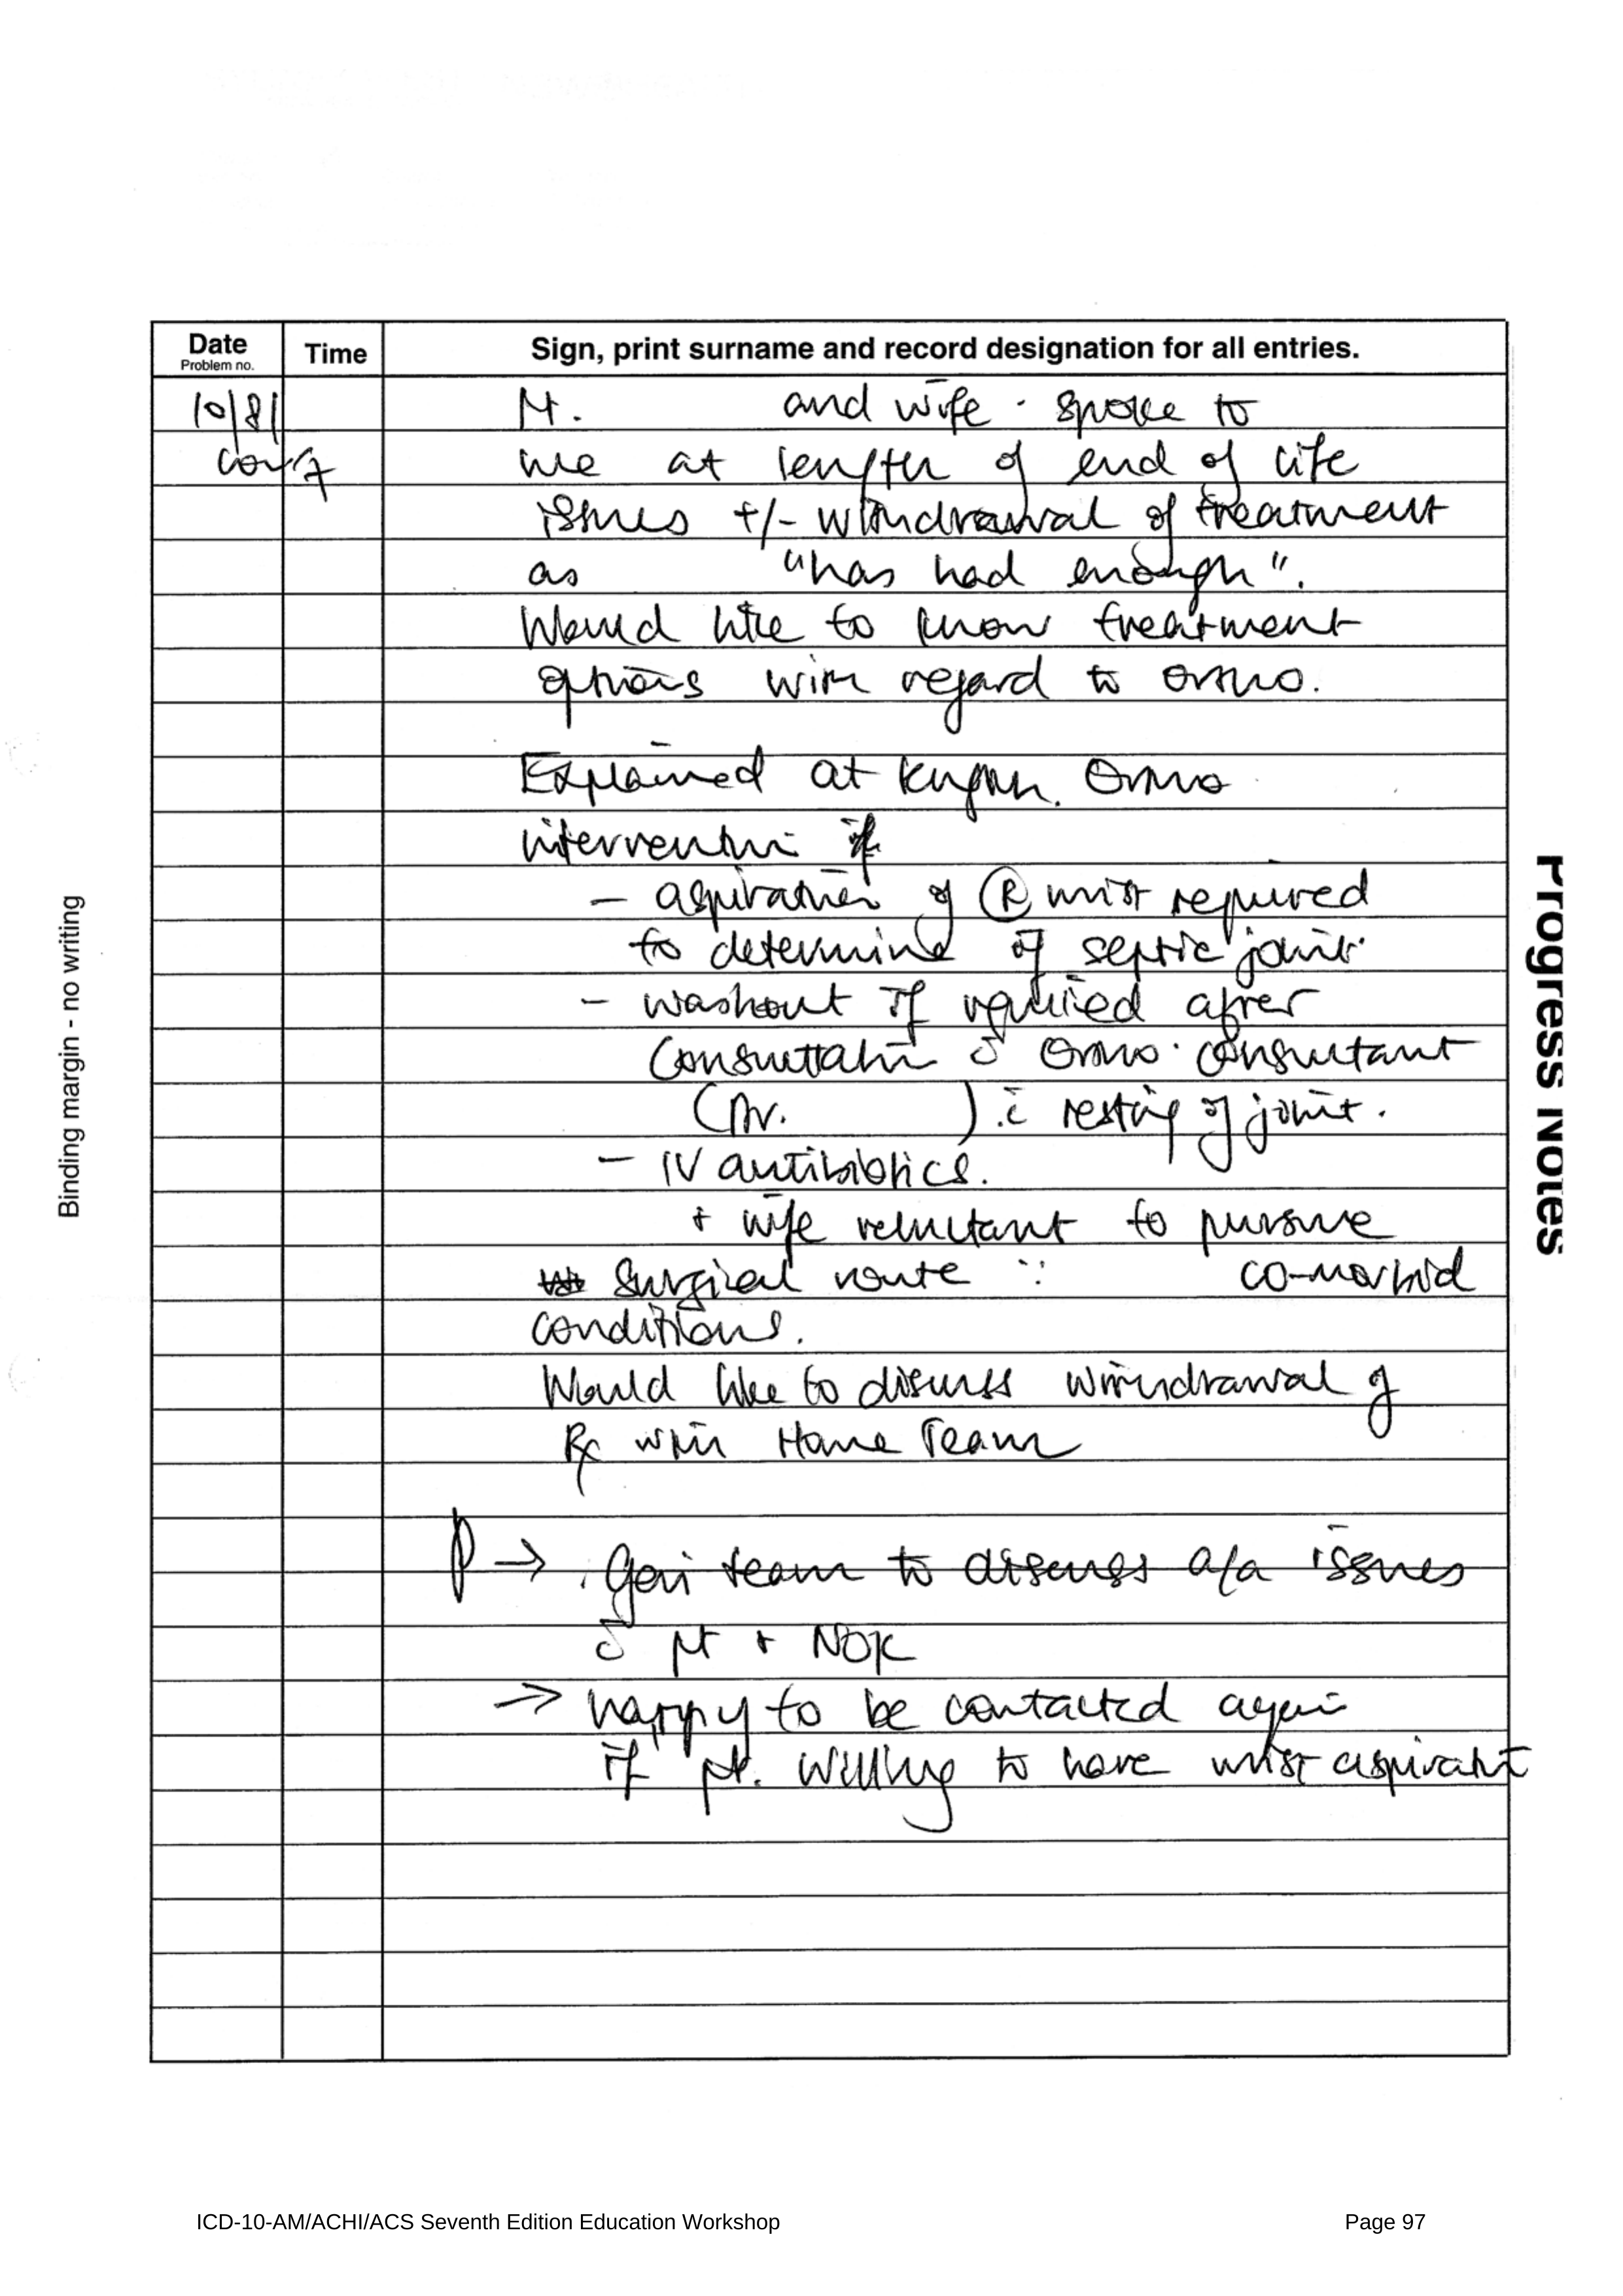 Date
Problem no.
Time
Sign, print surname and record designation for all entries.
10/8/
cont
Pt. and wife spoke to
me at length of end of life
issues +/- withdrawal of treatment
as "has had enough".
Would like to know treatment
options with regard to ortho.
Explained at length. Ortho
intervention if
- aspiration of Ⓡ wrist required
to determine if septic joint
- washout if required after
consultation c̄ Ortho consultant
(Dr. ) c̄ resting of joint.
- IV antibiotics.
+ wife reluctant to pursue
surgical route ∵ co-morbid
conditions.
Would like to discuss withdrawal of
Rx with Home Team
P → Geri team to discuss a/a issues
c̄ pt + NOK
→ happy to be contacted again
if pt. willing to have wrist aspirat
Binding margin - no writing
Progress Notes
ICD-10-AM/ACHI/ACS Seventh Edition Education Workshop
Page 97